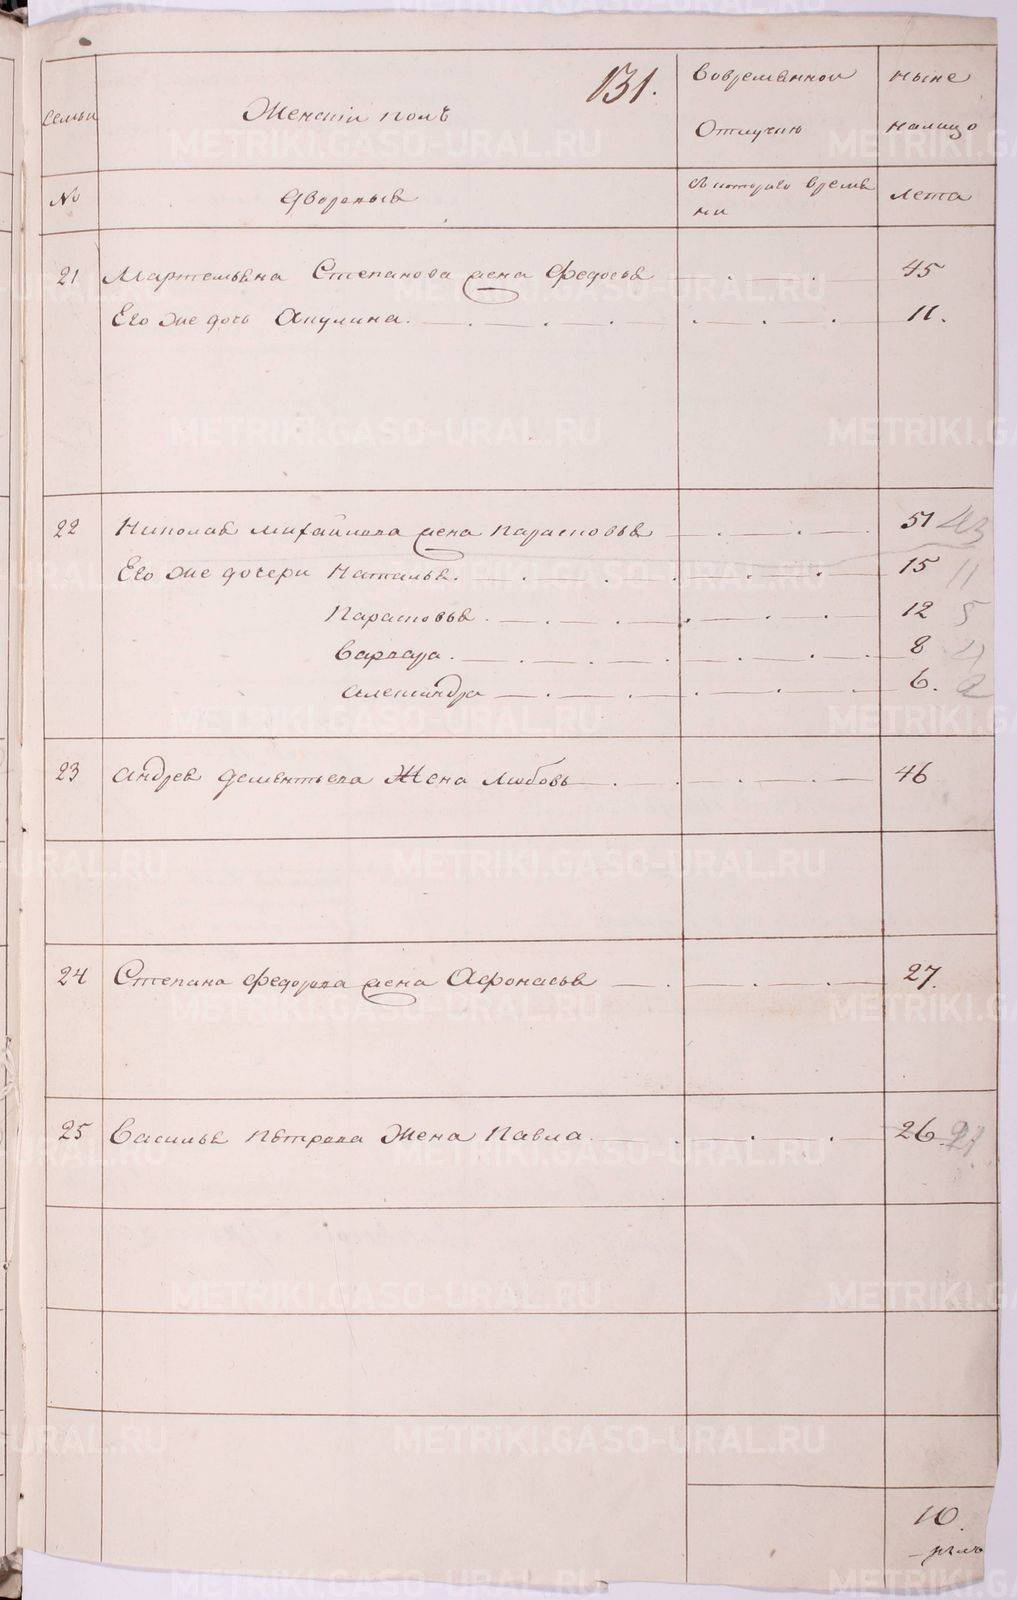 131.
семьи
Женскiй полъ
Вовременной
Отлучкѣ
ныне
налицо
№
Дворовыя
Съ котораго времѣ
ни
лета
21 Мартемьяна Степанова жена Федосья 45
Его же дочь Акулина. 11.
22 Николая Михайлова жена Парасковья 51 43
Его же дочери Наталья. 15 11
Парасковья 12 5
Варвара. 8 4
Александра 6. 2
23 Андрея Дементьева Жена Любовь 46
24 Степана Федорова жена Афонасья 27.
25 Василья Пѣтрова Жена Павла 26. 21
10.
METRIKI.GASO-URAL.RU